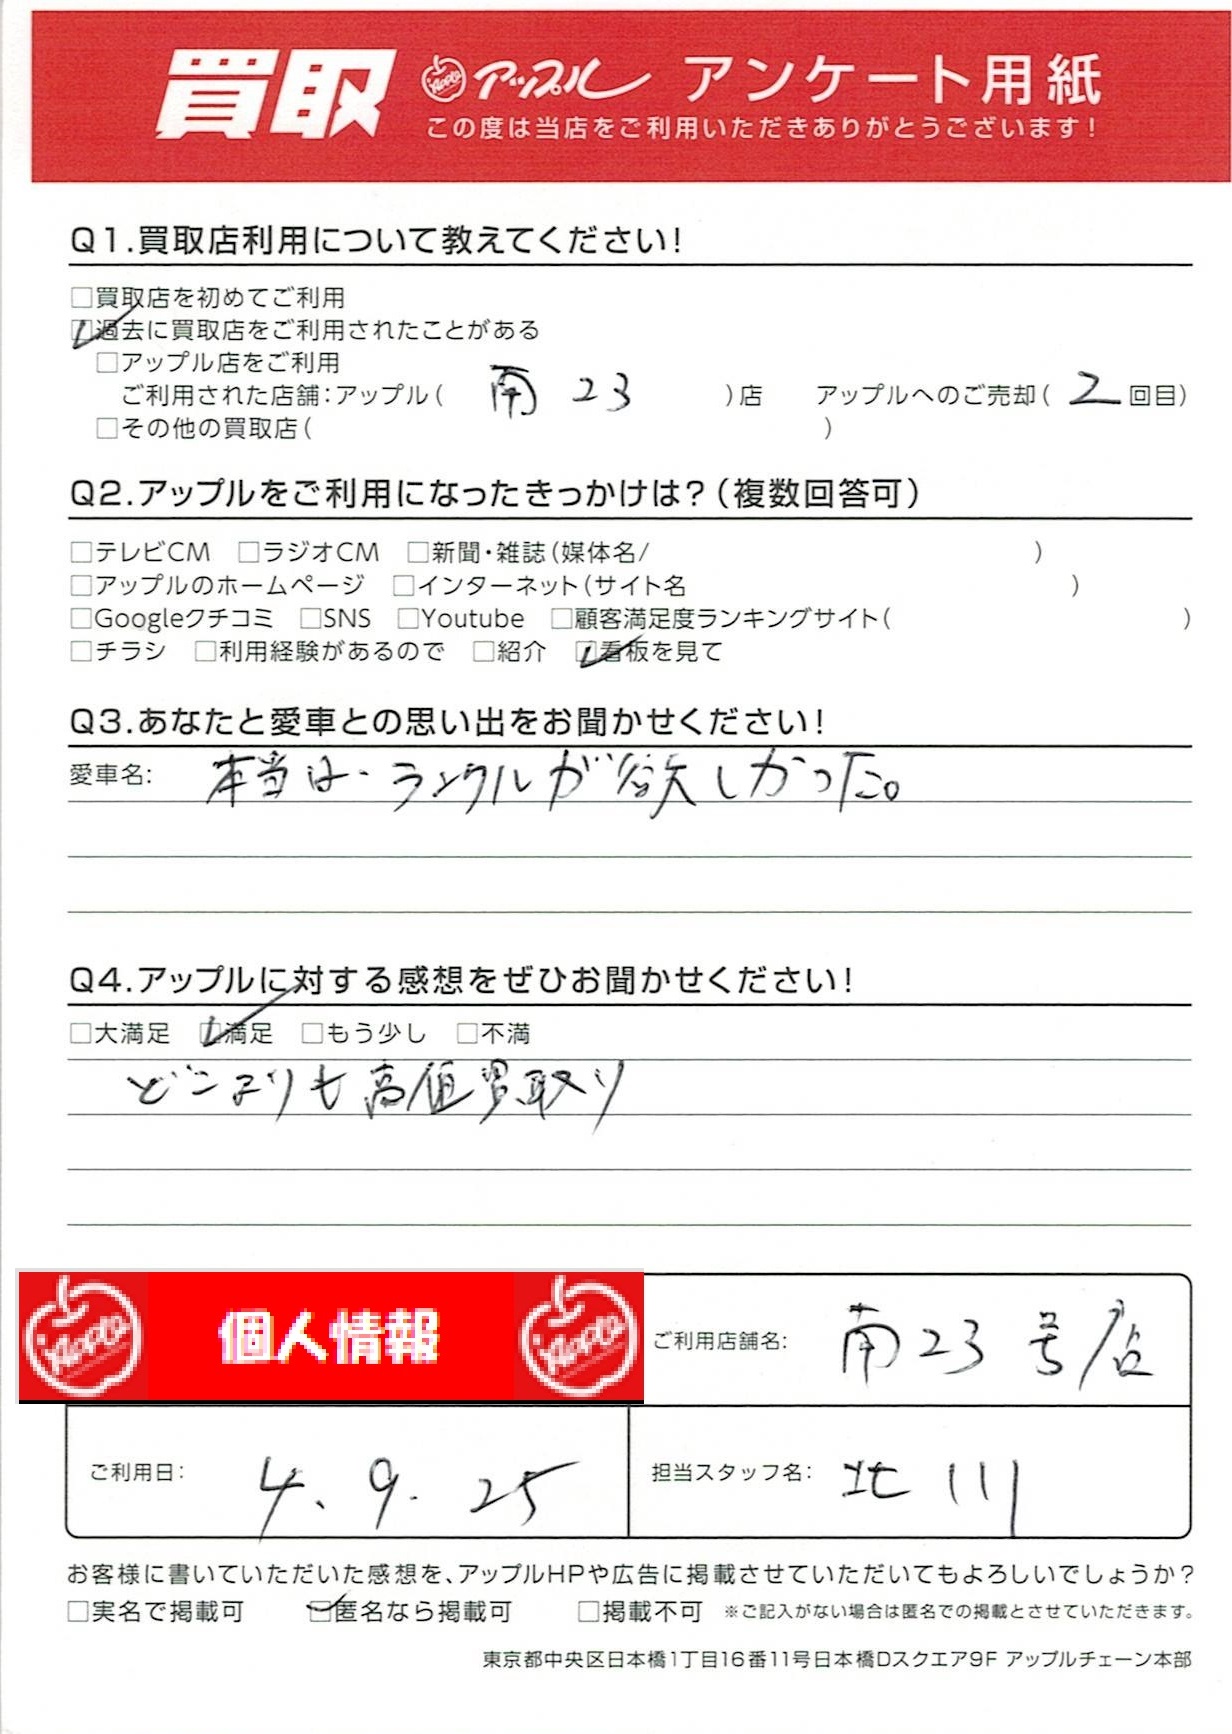 買取 Apple アップル アンケート用紙
この度は当店をご利用いただきありがとうございます!
Q1.買取店利用について教えてください!
□買取店を初めてご利用
☑過去に買取店をご利用されたことがある
□アップル店をご利用
ご利用された店舗:アップル( 南23 )店 アップルへのご売却( 2回目)
□その他の買取店( )
Q2.アップルをご利用になったきっかけは?(複数回答可)
□テレビCM □ラジオCM □新聞・雑誌(媒体名/ )
□アップルのホームページ □インターネット(サイト名 )
□Googleクチコミ □SNS □Youtube □顧客満足度ランキングサイト( )
□チラシ □利用経験があるので □紹介 ☑看板を見て
Q3.あなたと愛車との思い出をお聞かせください!
愛車名: 本当は、ランクルが欲しかった。
Q4.アップルに対する感想をぜひお聞かせください!
□大満足 ☑満足 □もう少し □不満
どこよりも高価買取り
Apple 個人情報 Apple ご利用店舗名: 南23号店
ご利用日: 4.9.25 担当スタッフ名: 北川
お客様に書いていただいた感想を、アップルHPや広告に掲載させていただいてもよろしいでしょうか?
□実名で掲載可 ☑匿名なら掲載可 □掲載不可 ※ご記入がない場合は匿名での掲載とさせていただきます。
東京都中央区日本橋1丁目16番11号日本橋Dスクエア9F アップルチェーン本部